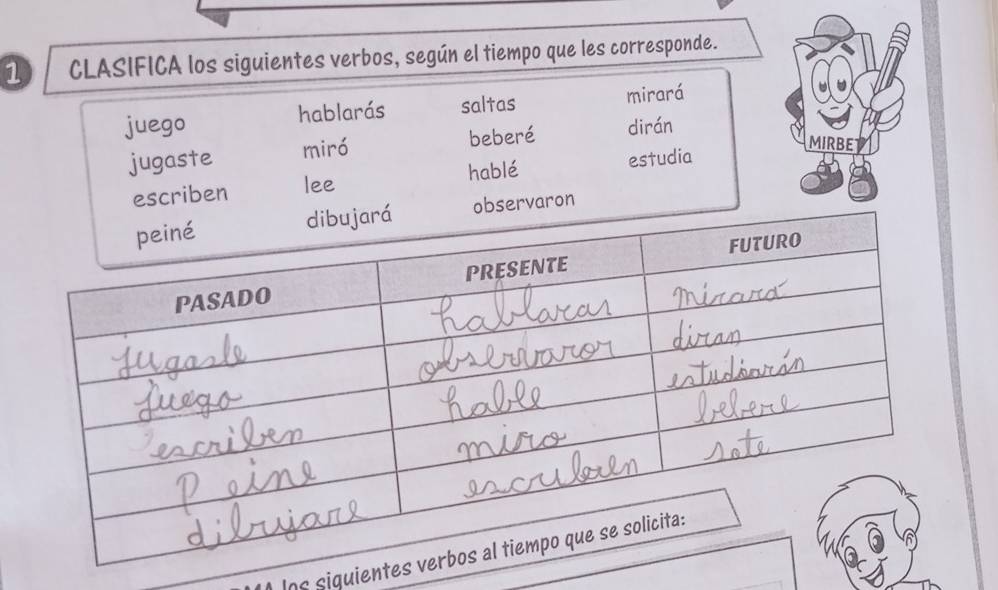 1 CLASIFICA los siguientes verbos, según el tiempo que les corresponde.
juego hablarás saltas mirará
jugaste miró beberé dirán
escriben lee hablé estudia
peiné dibujará observaron
MIRBET
PASADO PRESENTE FUTURO
jugaste hablaras mirará
juego observaron diran
escriben hable estudiarán
Peine miro bebere
dibujare escriben
los siguientes verbos al tiempo que se solicita: